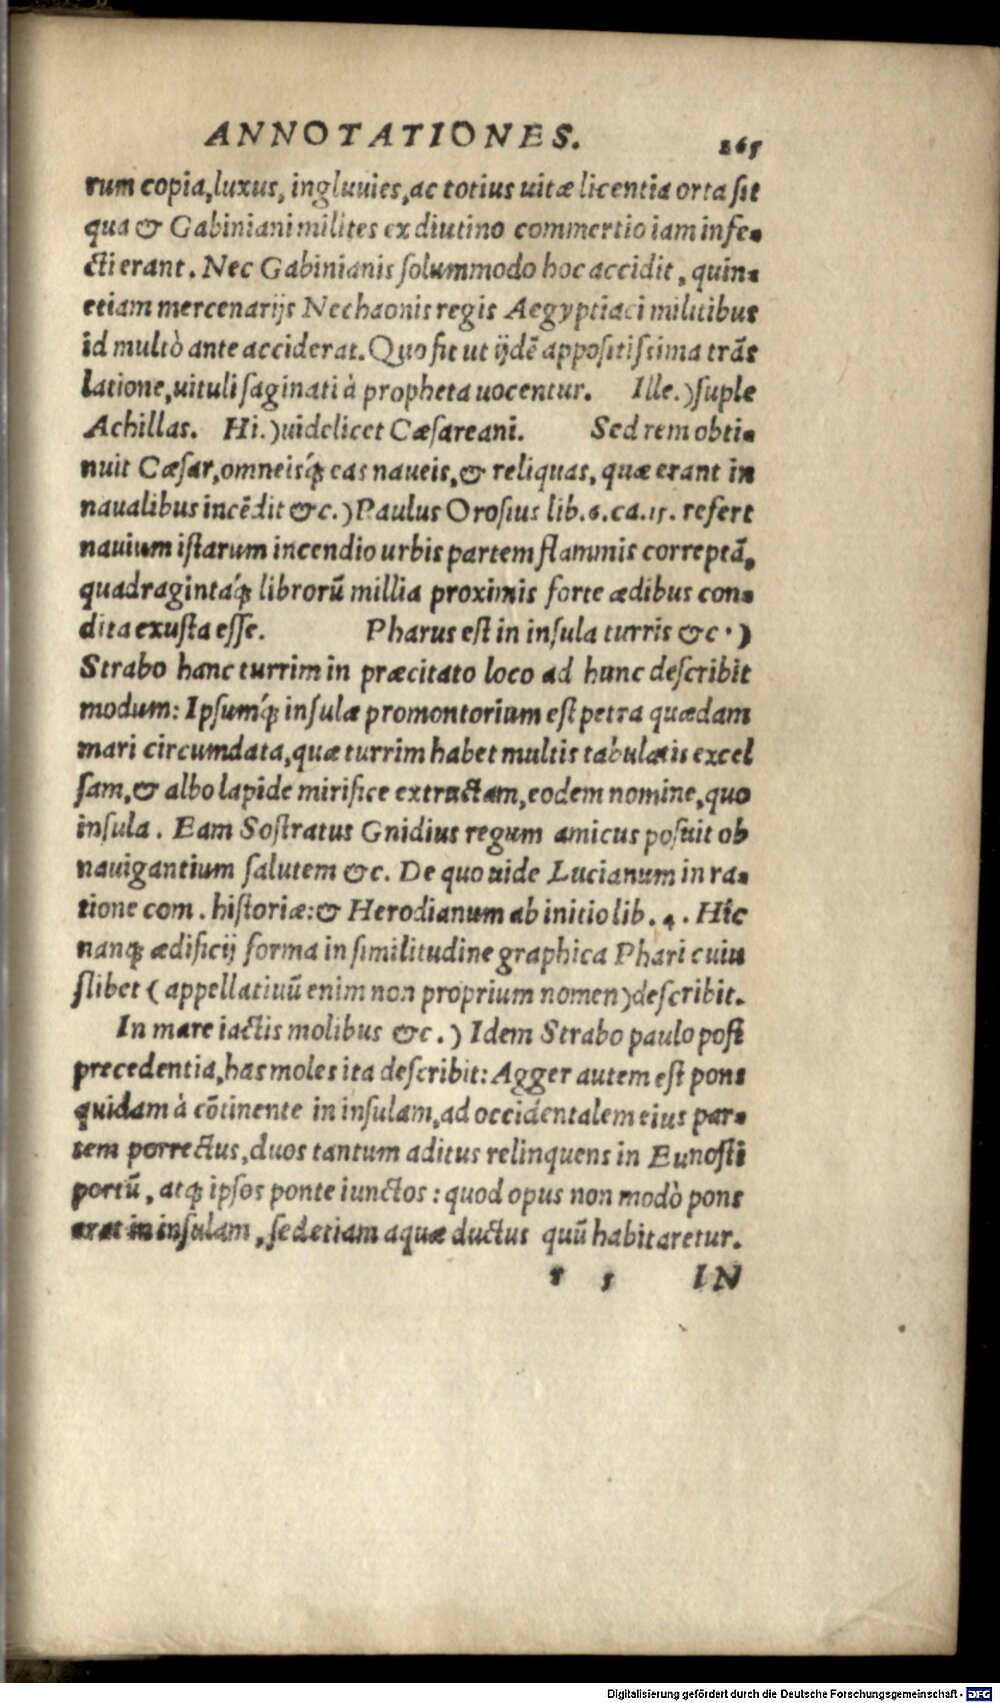 ANNOTATIONES. 265
rum copia, luxus, ingluuies, ac totius uitæ licentia orta sit
qua & Gabiniani milites ex diutino commertio iam infe-
cti erant. Nec Gabinianis solummodo hoc accidit, quin-
etiam mercenarijs Nechaonis regis Aegyptiaci militibus
id multò ante acciderat. Quo fit ut ijdē appositissima trās
latione, uituli saginati à propheta uocentur. Ille.) suple
Achillas. Hi.) uidelicet Cæsareani. Sed rem obti-
nuit Cæsar, omneisq́; eas naueis, & reliquas, quæ erant in
naualibus incēdit &c.) Paulus Orosius lib. 6. ca. 15. refert
nauium istarum incendio urbis partem flammis correptā,
quadragintaq́; librorū millia proximis forte ædibus con-
dita exusta esse. Pharus est in insula turris &c.)
Strabo hanc turrim in præcitato loco ad hunc describit
modum: Ipsumq́; insulæ promontorium est petra quædam
mari circumdata, quæ turrim habet multis tabulatis excel
sam, & albo lapide mirifice extructam, eodem nomine, quo
insula. Eam Sostratus Gnidius regum amicus posuit ob
nauigantium salutem &c. De quo uide Lucianum in ra-
tione com. historiæ: & Herodianum ab initio lib. 4. Hic
nanq; ædificij forma in similitudine graphica Phari cuiu
slibet (appellatiuū enim non proprium nomen) describit.
In mare iactis molibus &c.) Idem Strabo paulo post
precedentia, has moles ita describit: Agger autem est pons
quidam à cōtinente in insulam, ad occidentalem eius par-
tem porrectus, duos tantum aditus relinquens in Eunosti
portū, atq; ipsos ponte iunctos: quod opus non modò pons
erat in insulam, sed etiam aquæ ductus quū habitaretur.
r 5 IN
Digitalisierung gefördert durch die Deutsche Forschungsgemeinschaft - DFG